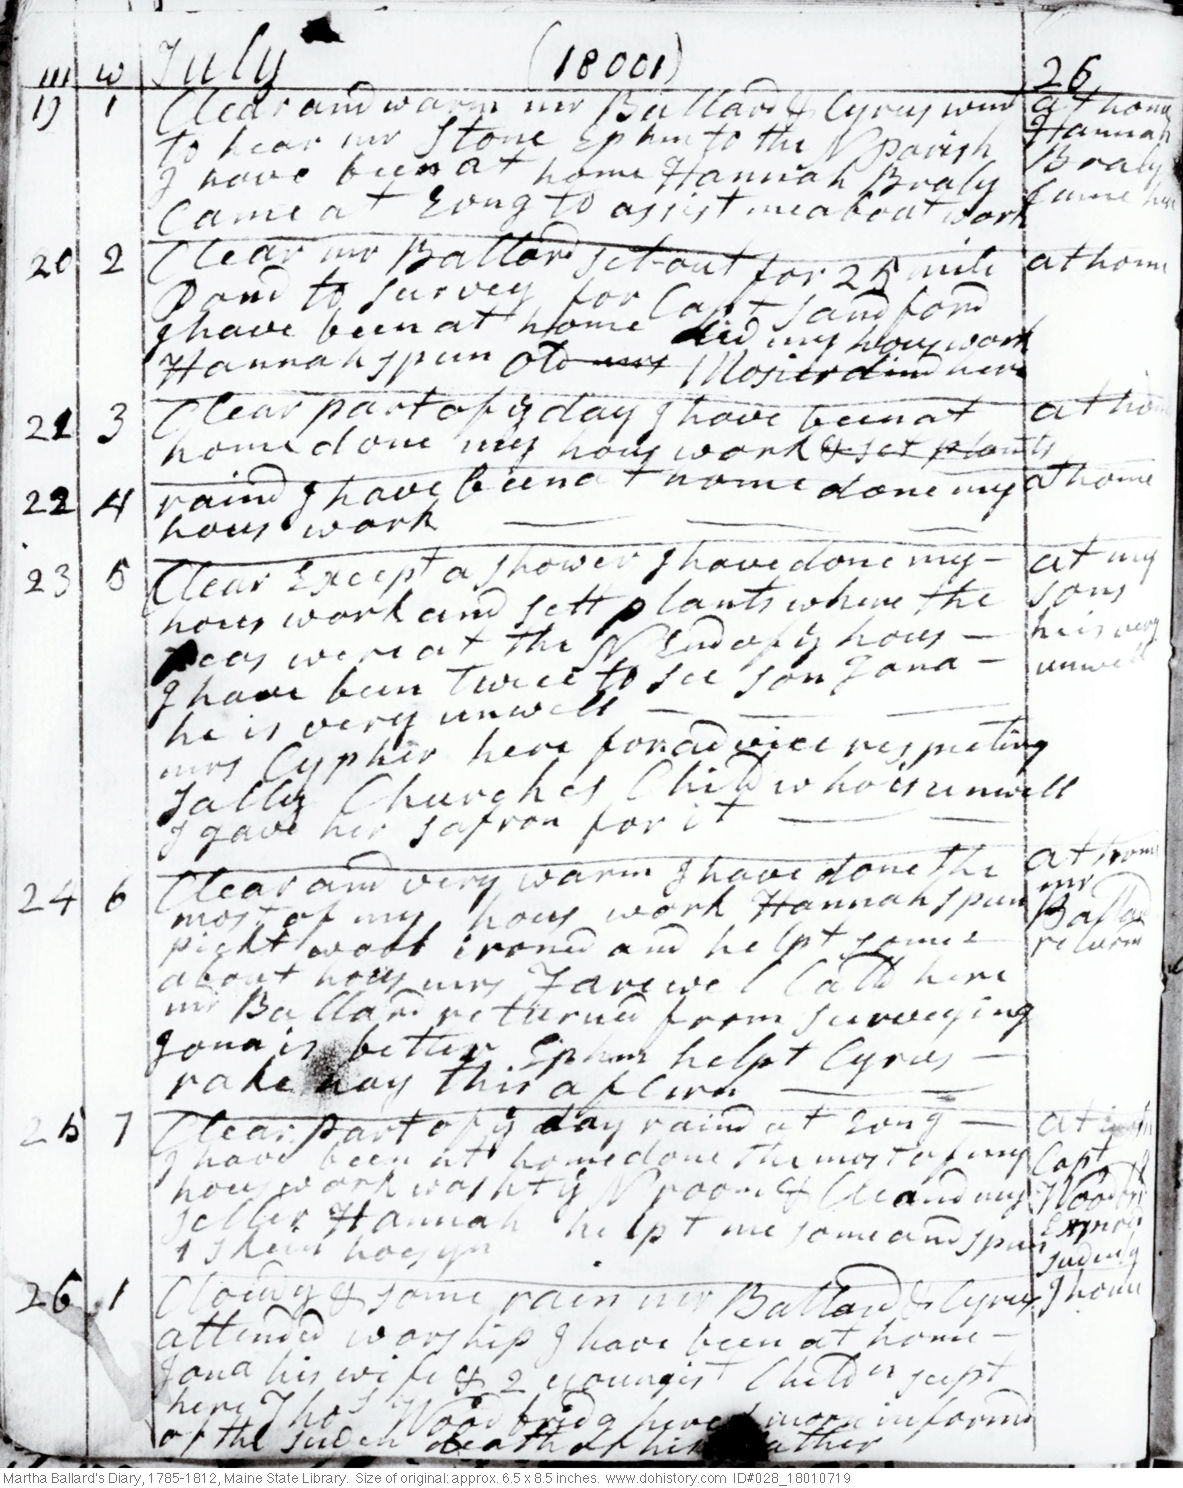 m w July (18001) 26
19 1 Clear and warm mr Ballard & Cyrus went at home
to hear mr Stone Ephm to the N parish Hannah
I have been at home Hannah Braly Braly
Came at Evng to assist me about work Came here
20 2 Clear mr Ballard set out for 25 mile at home
Pond to survey for Capt Sandford
I have been at home did my hous work
Hannah spun Old mrs Mosier dind here
21 3 Clear part of ye day I have been at at home
home done my hous work & set plants
22 4 raind I have been at home done my at home
hous work
23 5 Clear Except a shower I have done my at my
hous work and sett plants where the sons
peas were at the N End of ye hous he is very
I have been twice to see son Jona unwell
he is very unwell
mrs Cypher here for advice respecting
Sally Churches Child who is unwell
I gave her safron for it
24 6 Clear and very warm I have done the at home
most of my hous work Hannah spun mr
pickt wool ironed and helpt some Ballard
about hous mrs Farewel Calld here returnd
mr Ballard returned from surveying
Jona is better Ephm helpt Cyrus
rake hay this aftern
25 7 Clear part of ye day raind at Evng at
I have been at home done the most of my Capt
hous work washt ye N room & Cleand my Woodbrg
seller Hannah helpt me some and spun Expired
1 skein yn sudenly
26 1 Cloudy & some rain mr Ballard & Cyrus I home
attended worship I have been at home
Jona his wife & 2 youngest Childn sleept
here Thos Woodbridg here informd
of the suden death of his Father
Martha Ballard's Diary, 1785-1812, Maine State Library. Size of original: approx. 6.5 x 8.5 inches. www.dohistory.com ID#028_18010719